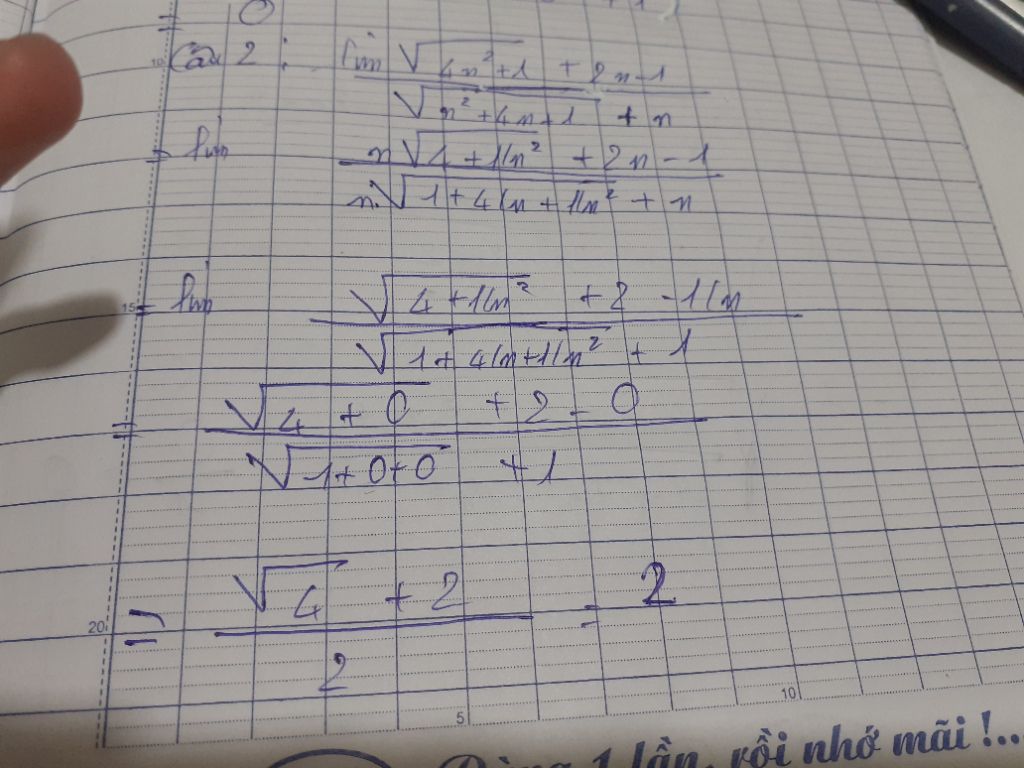 0
Câu 2 : lim √(4n²+1) + 2n-1
√(n²+4n+1) + n
= lim n√(4+1/n²) + 2n-1
n.√(1+4/n+1/n²) + n
= lim √(4+1/n²) +2 -1/n
√(1+4/n+1/n²) + 1
= √(4+0) +2-0
√(1+0+0) +1
= √4 +2 = 2
2
15
20
5
10
1 lần, rồi nhớ mãi!...